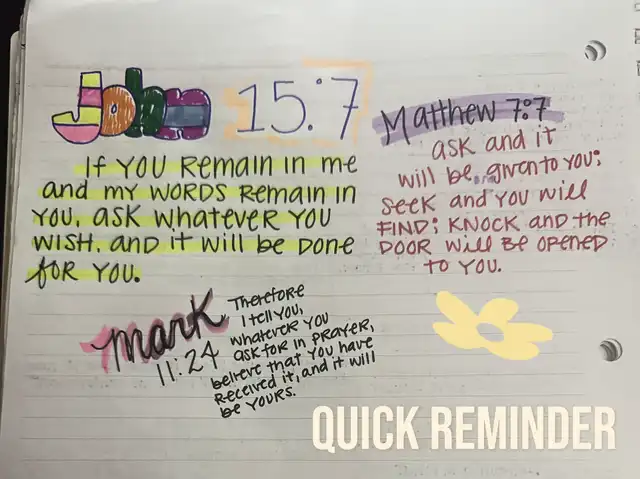 John 15:7
If you remain in me
and my words remain in
you, ask whatever you
wish, and it will be done
for you.
Matthew 7:7
ask and it
will be given to you;
seek and you will
find; knock and the
door will be opened
to you.
Mark
11:24
Therefore
I tell you,
whatever you
ask for in prayer,
believe that you have
received it, and it will
be yours.
QUICK REMINDER